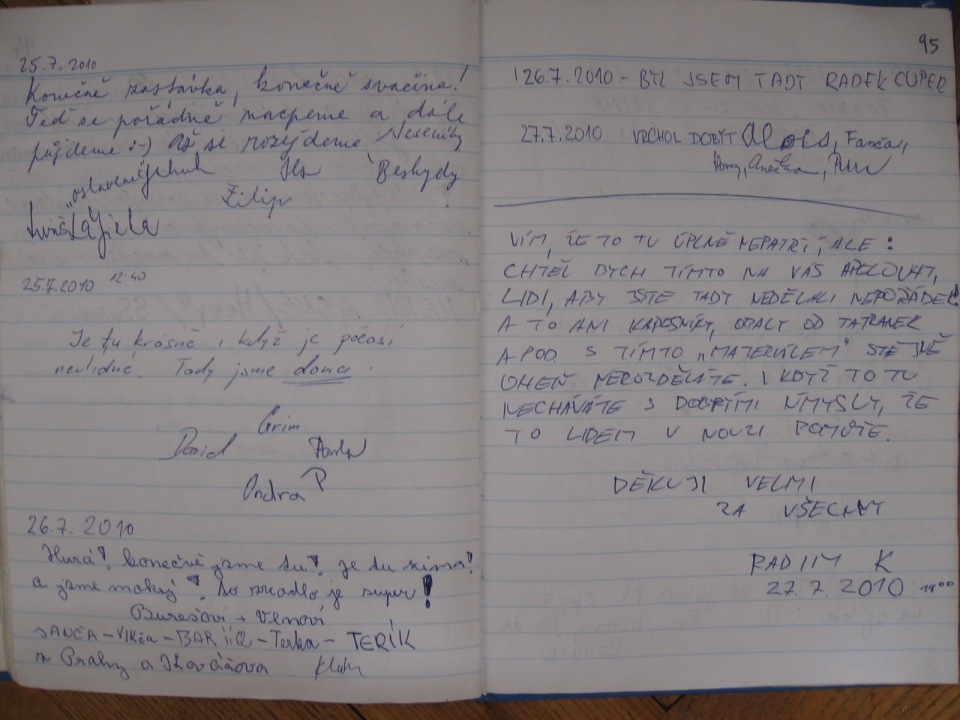 25.7.2010
Konečně zastávka, konečně svačina!
Teď se pořádně nacpeme a dále
půjdeme :-) Až se rozejdeme
Beskydy
Filip
25.7.2010 12:40
Je tu krásně i když je počasí
nevlidné. Tady jsme doma.
Grim
David
Ondra P
26.7.2010
Hurá!, konečně jsme tu!, je tu zima!
a jsme mokrý!, to
je super!
Burešovi + Vlnovi
SANČA - VIKča - BAR - Terka - TERÍK
z Prahy a
95
26.7.2010 - BYL JSEM TADY RADEK CUPER
27.7.2010 VRCHOL DOBYT Alois, Fanča,
Anežka,
VÍM, ŽE TO TU ÚPLNĚ NEPATŘÍ, ALE:
CHTĚL BYCH TÍMTO NA VÁS APELOVAT,
LIDI, ABY JSTE TADY NEDĚLALI NEPOŘÁDEK
A TO ANI KAPESNÍKY, OBALY OD TATRANEK
APOD. S TÍMTO „MATERIÁLEM" STEJNĚ
OHEŇ NEROZDĚLÁTE. I KDYŽ TO TU
NECHÁVÁTE S DOBRÝMI ÚMYSLY, ŽE
TO LIDEM V NOUZI POMŮŽE.
DĚKUJI VELMI
ZA VŠECHNY
RADIM K
27.7.2010